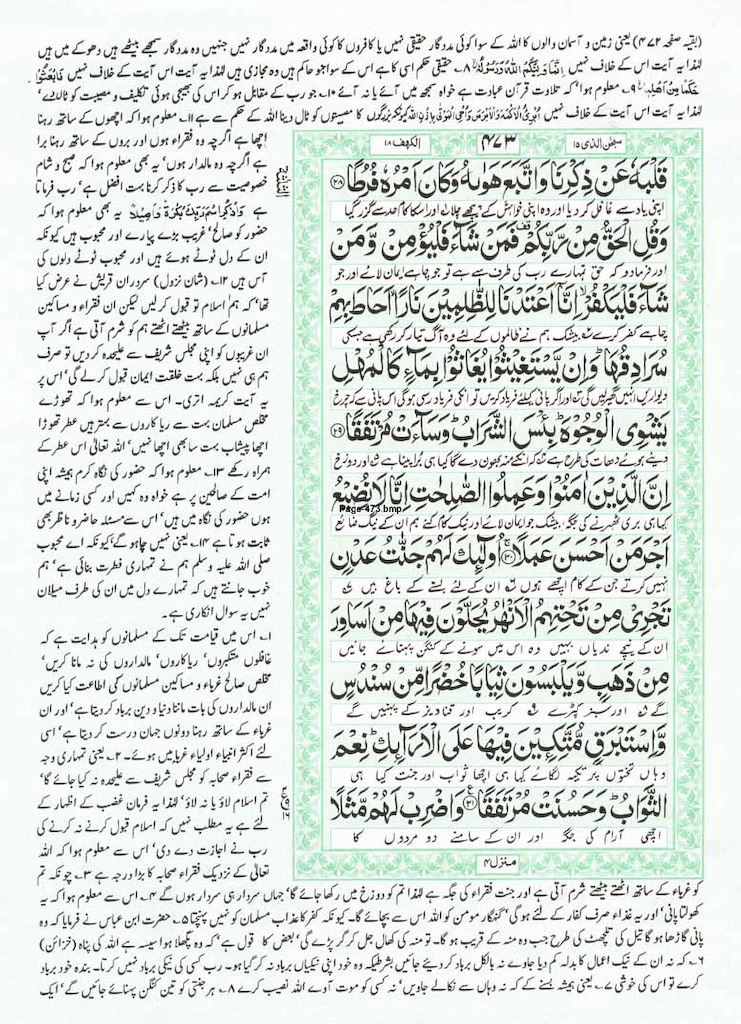 (بقیہ صفحہ ۴۷۲) یعنی زمین و آسمان والوں کا اللہ کے سوا کوئی مددگار حقیقی نہیں یا کافروں کا کوئی واقعہ میں مددگار نہیں جنہیں وہ مددگار سمجھے بیٹھے ہیں وہ دھوکے میں ہیں
لہٰذا یہ آیت اس کے خلاف نہیں اِنَّمَا وَلِیُّكُمُ اللّٰهُ وَرَسُوْلُهٗ ۸۔ حقیقی حکم اسی کا ہے اس کے سوا جو حاکم ہیں وہ مجازی ہیں لہٰذا یہ آیت اس آیت کے خلاف نہیں فَابْعَثُوْا
حَكَمًا مِّنْ اَهْلِهٖ ۹۔ معلوم ہوا کہ تلاوت قرآن عبادت ہے خواہ سمجھ میں آئے یا نہ آئے ۱۰۔ جو رب کے مقابل ہو کر اس کی بھیجی ہوئی تکلیف و مصیبت کو ٹال دے
لہٰذا یہ آیت اس آیت کے خلاف نہیں اُبْرِئُ الْاَكْمَهَ وَالْاَبْرَصَ وَاُحْیِ الْمَوْتٰى بِاِذْنِ اللّٰهِ کیونکہ بزرگوں کا مصیبتوں کو ٹال دینا اللہ کے حکم سے ہے ۱۱۔ معلوم ہوا کہ اچھوں کے ساتھ رہنا
اچھا ہے اگرچہ وہ فقراء ہوں اور بروں کے ساتھ رہنا برا
ہے اگرچہ وہ مالدار ہوں یہ بھی معلوم ہوا کہ صبح و شام
خصوصیت سے رب کا ذکر کرنا بہت افضل ہے رب فرماتا
ہے وَاذْكُرِ اسْمَ رَبِّكَ بُكْرَةً وَّاَصِیْلًا یہ بھی معلوم ہوا کہ
حضور کو صالح غریب بڑے پیارے اور محبوب ہیں کیونکہ
ان کے دل ٹوٹے ہوئے ہیں اور محبوب ٹوٹے دلوں کی
آس ہیں ۱۲۔ (شان نزول) سرداران قریش نے عرض کیا
تھا کہ ہم اسلام تو قبول کر لیں لیکن ان فقراء و مساکین
مسلمانوں کے ساتھ بیٹھتے اٹھتے ہم کو شرم آتی ہے اگر آپ
ان غریبوں کو اپنی مجلس شریف سے علیحدہ کر دیں تو صرف
ہم ہی نہیں بلکہ بہت خلقت ایمان قبول کر لے گی اس پر
یہ آیت کریمہ اتری۔ اس سے معلوم ہوا کہ تھوڑے
مخلص مسلمان بہت سے ریاکاروں سے بہتر ہیں عطر تھوڑا
اچھا پیشاب بہت سا بھی اچھا نہیں اللہ تعالیٰ اس عطر کے
ہمراہ رکھے ۱۳۔ معلوم ہوا کہ حضور کی نگاہ کرم ہمیشہ اپنی
امت کے صالحین پر ہے خواہ وہ کہیں اور کسی زمانے میں
ہوں حضور کی نگاہ میں ہیں اس سے مسئلہ حاضر و ناظر بھی
ثابت ہوتا ہے ۱۴۔ یعنی نہیں چاہو گے کیونکہ اے محبوب
صلی اللہ علیہ وسلم ہم نے تمہاری فطرت بنائی ہے ہم
خوب جانتے ہیں کہ تمہارے دل میں ان کی طرف میلان
نہیں یہ سوال انکاری ہے۔
۱۔ اس میں قیامت تک کے مسلمانوں کو ہدایت ہے کہ
غافلوں متکبروں ریاکاروں مالداروں کی نہ مانا کریں
مخلص صالح غرباء و مساکین مسلمانوں کی اطاعت کیا کریں
ان مالداروں کی بات ماننا دنیا و دین برباد کر دیتا ہے اور ان
غرباء کے ساتھ رہنا دونوں جہان درست کر دیتا ہے اسی
لئے اکثر انبیاء اولیاء غربا میں ہوئے۔ ۲۔ یعنی تمہاری وجہ
سے فقراء صحابہ کو مجلس شریف سے علیحدہ نہ کیا جائے گا
تم اسلام لاؤ یا نہ لاؤ لہٰذا یہ فرمان غضب کے اظہار کے
لئے ہے یہ مطلب نہیں کہ اسلام قبول کرنے نہ کرنے کی
رب نے اجازت دے دی اس سے معلوم ہوا کہ اللہ
تعالیٰ کے نزدیک فقراء صحابہ کا بڑا درجہ ہے ۳۔ چونکہ تم
سبحٰن الذی ۱۵
۴۷۳
الکھف ۱۸
قَلْبَهٗ عَنْ ذِكْرِنَا وَاتَّبَعَ هَوٰىهُ وَكَانَ اَمْرُهٗ فُرُطًا ﴿۲۸﴾
اپنی یاد سے غافل کر دیا اور وہ اپنی خواہش کے پیچھے چلا اور اس کا کام حد سے گزر گیا
وَقُلِ الْحَقُّ مِنْ رَّبِّكُمْ فَمَنْ شَآءَ فَلْیُؤْمِنْ وَّمَنْ
اور فرما دو کہ حق تمہارے رب کی طرف سے ہے تو جو چاہے ایمان لائے اور جو
شَآءَ فَلْیَكْفُرْ اِنَّاۤ اَعْتَدْنَا لِلظّٰلِمِیْنَ نَارًا اَحَاطَ بِهِمْ
چاہے کفر کرے بیشک ہم نے ظالموں کے لئے وہ آگ تیار کر رکھی ہے جسکی
سُرَادِقُهَا وَاِنْ یَّسْتَغِیْثُوْا یُغَاثُوْا بِمَآءٍ كَالْمُهْلِ
دیواریں انہیں گھیر لیں گی اور اگر پانی کیلئے فریاد کریں تو انکی فریاد رسی ہو گی اس پانی سے کہ چرخ
یَشْوِی الْوُجُوْهَ بِئْسَ الشَّرَابُ وَسَآءَتْ مُرْتَفَقًا ﴿۲۹﴾
دیئے ہوئے دھات کی طرح ہے کہ انکے منہ بھون دے گا کیا ہی برا پینا ہے اور دوزخ
اِنَّ الَّذِیْنَ اٰمَنُوْا وَعَمِلُوا الصّٰلِحٰتِ اِنَّا لَا نُضِیْعُ
Page 473.bmp
کیا ہی بری ٹھہرنے کی جگہ بیشک جو ایمان لائے اور نیک کام کئے ہم ان کے نیگ ضائع
اَجْرَ مَنْ اَحْسَنَ عَمَلًا ﴿۳۰﴾ اُولٰٓئِكَ لَهُمْ جَنّٰتُ عَدْنٍ
نہیں کرتے جن کے کام اچھے ہوں ان کے لئے بسنے کے باغ ہیں
تَجْرِیْ مِنْ تَحْتِهِمُ الْاَنْهٰرُ یُحَلَّوْنَ فِیْهَا مِنْ اَسَاوِرَ
ان کے نیچے ندیاں بہیں وہ اس میں سونے کے کنگن پہنائے جائیں
مِنْ ذَهَبٍ وَّیَلْبَسُوْنَ ثِیَابًا خُضْرًا مِّنْ سُنْدُسٍ
گے اور سبز کپڑے کریب اور قناویز کے پہنیں گے
وَّاِسْتَبْرَقٍ مُّتَّكِـِٕیْنَ فِیْهَا عَلَى الْاَرَآىِٕكِ نِعْمَ
وہاں تختوں پر تکیہ لگائے کیا ہی اچھا ثواب اور جنت کیا ہی
الثَّوَابُ وَحَسُنَتْ مُرْتَفَقًا ﴿۳۱﴾ وَاضْرِبْ لَهُمْ مَّثَلًا
اچھی آرام کی جگہ اور ان کے سامنے دو مردوں کا
منزل ۴
کو غرباء کے ساتھ اٹھتے بیٹھتے شرم آتی ہے اور جنت فقراء کی جگہ ہے لہٰذا تم کو دوزخ میں رکھا جائے گا جہاں سردار ہی سردار ہوں گے ۴۔ اس سے معلوم ہوا کہ یہ
کھولتا پانی اور یہ غذاء صرف کفار کے لئے ہو گی گنہگار مومن کو اللہ اس سے بچائے گا۔ کیونکہ کفر کا عذاب مسلمان کو نہیں پہنچتا ۵۔ حضرت ابن عباس نے فرمایا کہ وہ
پانی گاڑھا ہو گا تیل کی تلچھٹ کی طرح جب وہ منہ کے قریب ہو گا۔ تو منہ کی کھال جل کر گر پڑے گی بعض کا قول ہے کہ وہ پگھلا ہوا سیسہ ہے اللہ کی پناہ (خزائن)
۶۔ کہ نہ ان کے نیک اعمال کا بدلہ کم دیا جاوے نہ بالکل برباد کر دیئے جائیں بشرطیکہ وہ خود اپنی نیکیاں برباد نہ کر گیا ہو۔ رب کسی کی نیکی برباد نہیں کرتا۔ بندہ خود برباد
کرے تو اس کی خوشی ۷۔ یعنی ہمیشہ بسنے کے کہ نہ وہاں سے نکالے جاویں نہ کسی کو موت آوے اللہ نصیب کرے ۸۔ ہر جنتی کو تین کنگن پہنائے جائیں گے ایک